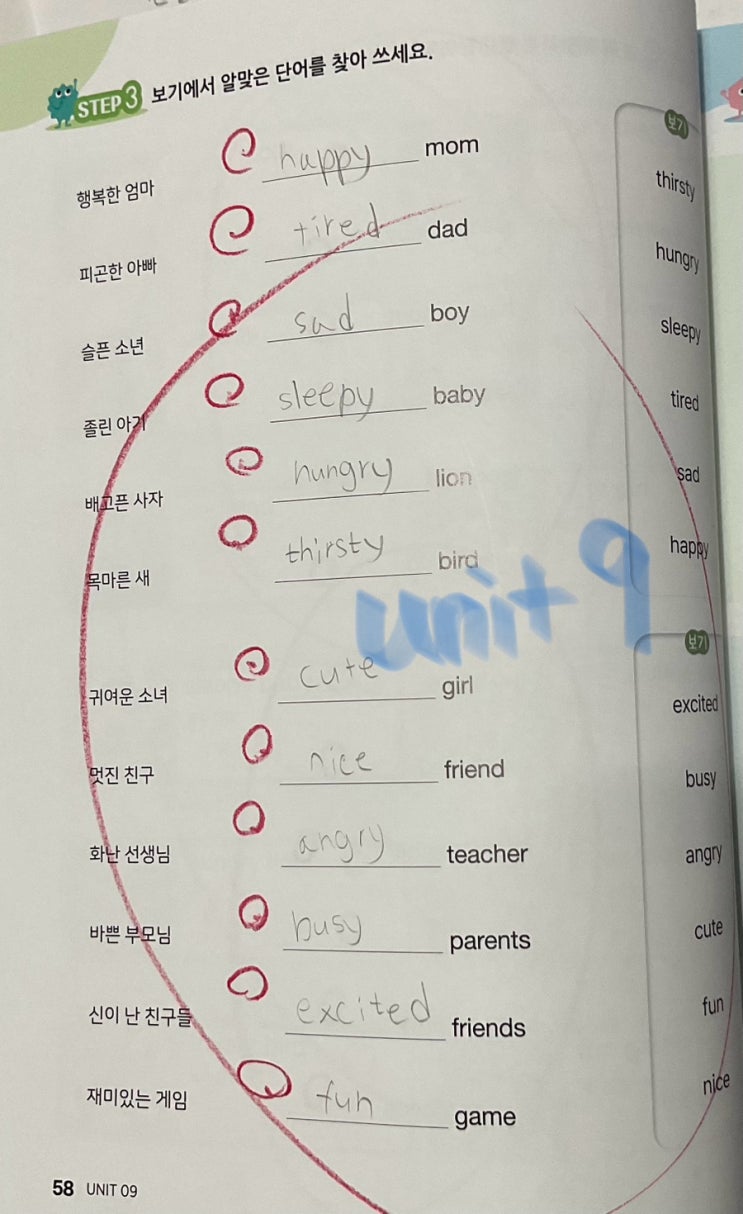 STEP 3 보기에서 알맞은 단어를 찾아 쓰세요.
행복한 엄마 happy mom
피곤한 아빠 tired dad
슬픈 소년 sad boy
졸린 아기 sleepy baby
배고픈 사자 hungry lion
목마른 새 thirsty bird
보기
thirsty
hungry
sleepy
tired
sad
happy
unit 9
귀여운 소녀 cute girl
멋진 친구 nice friend
화난 선생님 angry teacher
바쁜 부모님 busy parents
신이 난 친구들 excited friends
재미있는 게임 fun game
보기
excited
busy
angry
cute
fun
nice
58 UNIT 09